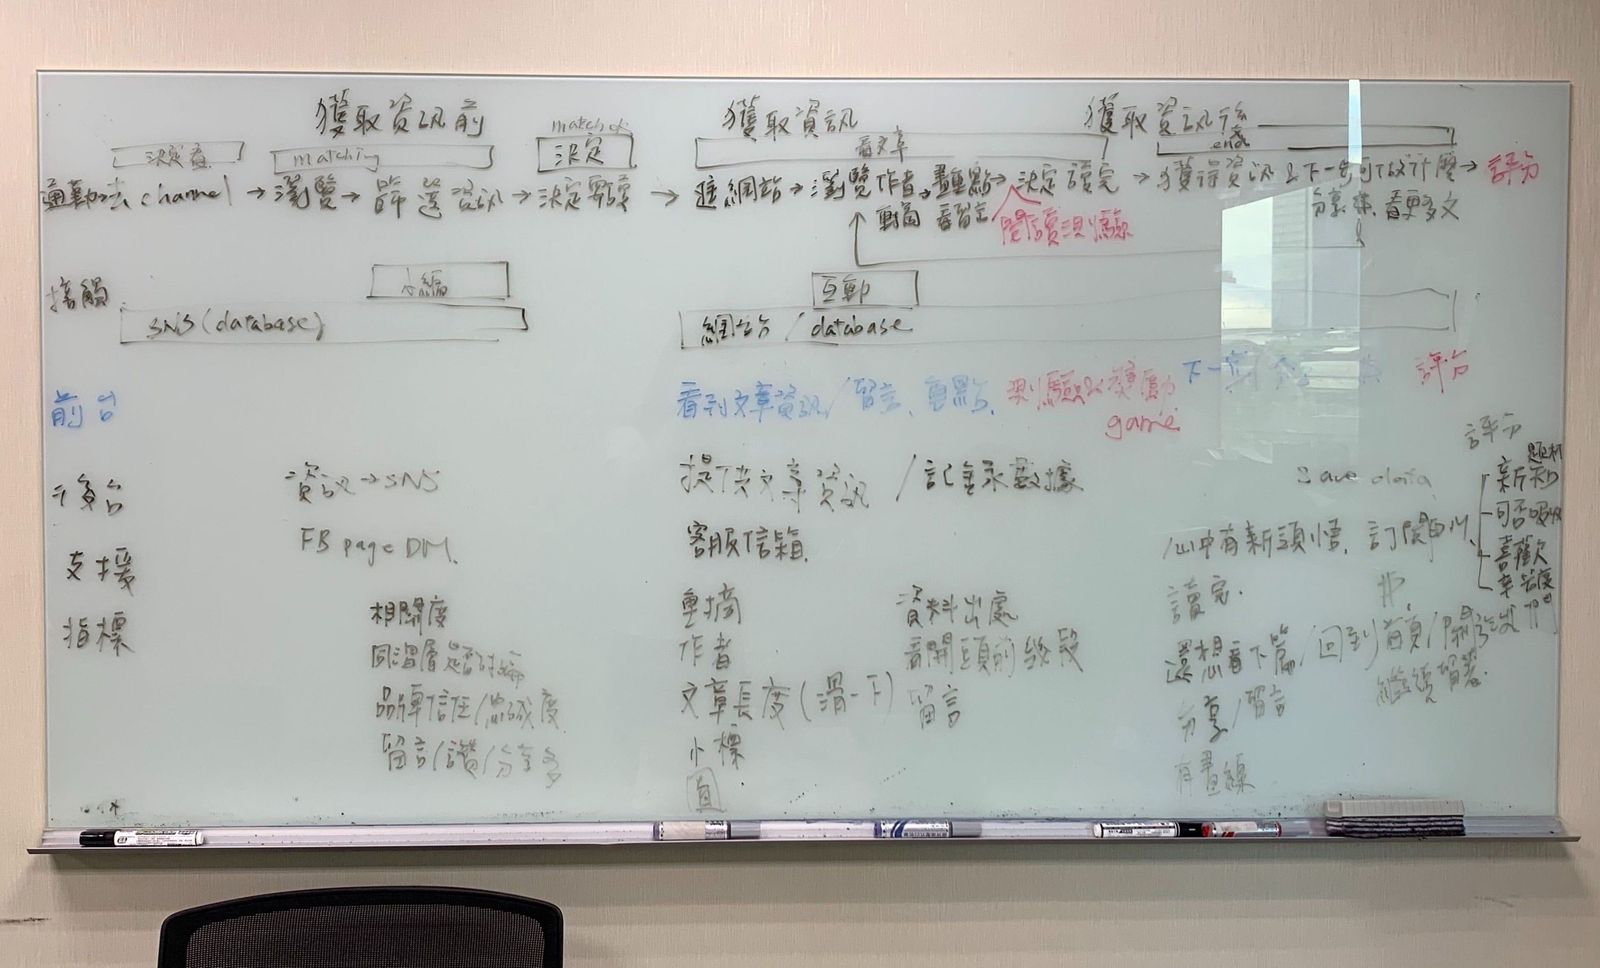 獲取資訊前 獲取資訊 獲取資訊後
決定看 matching match 決定 看文章 end
通勤 去 channel → 瀏覽 → 篩選資訊 → 決定要讀 → 進網站 → 瀏覽作者 → 畫重點 → 決定讀完 → 獲得資訊 & 下一步可做什麼 → 評分
重摘 看留言 閱讀測驗 分享 看更多文
接觸 小編 互動
SNS (database) 網站 / database
前台 看到文章資訊 / 留言、畫點、測驗 獎勵 下一 評分
game
評分
後台 資訊 → SNS 提供文章資訊 / 記錄數據 Save data 新知
可否吸收
支援 FB page DM. 客服信箱 心中有新領悟、訂閱 喜歡
指標 相關度 重摘 資料出處 讀完
同溫層是否討論 作者 看開頭前幾段 還想看下篇 / 回到首頁 /
品牌信任/忠誠度 文章長度 (滑一下) 留言 分享/留言 繼續看
留言/讚/分享多 小標 有畫線